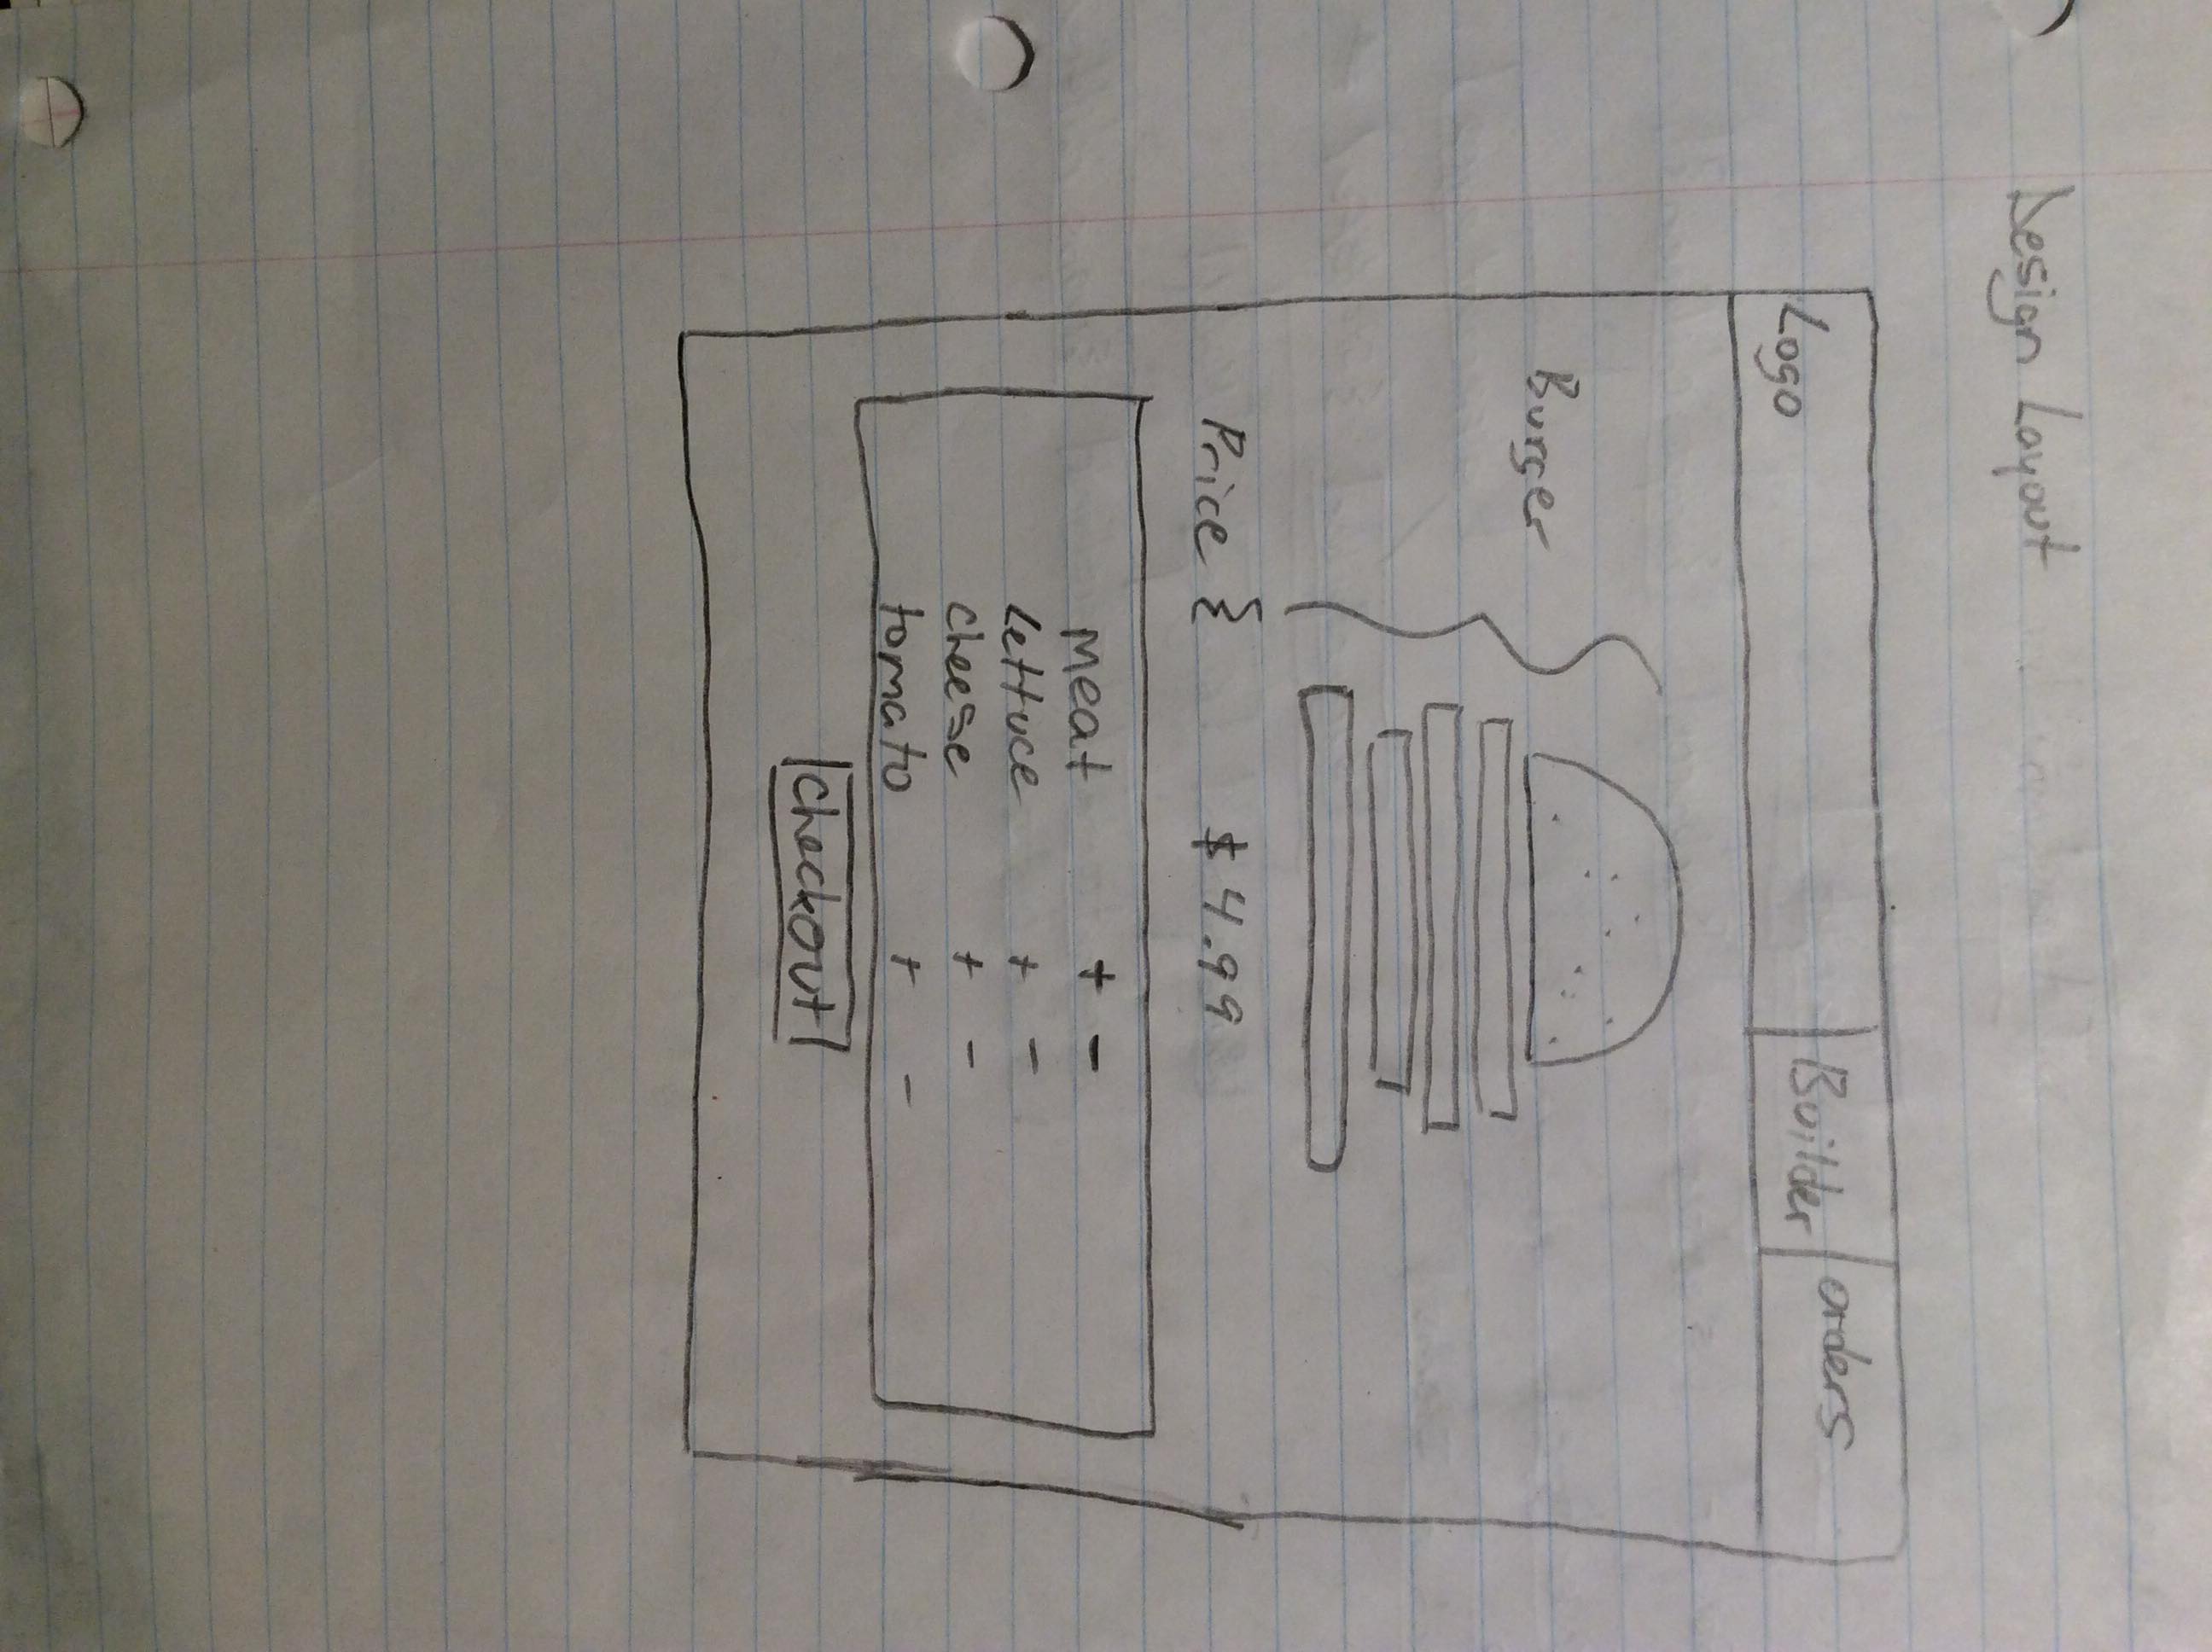 Design Layout
Logo Builder orders
Burger
Price $4.99
Meat + -
Lettuce + -
cheese + -
tomato + -
checkout